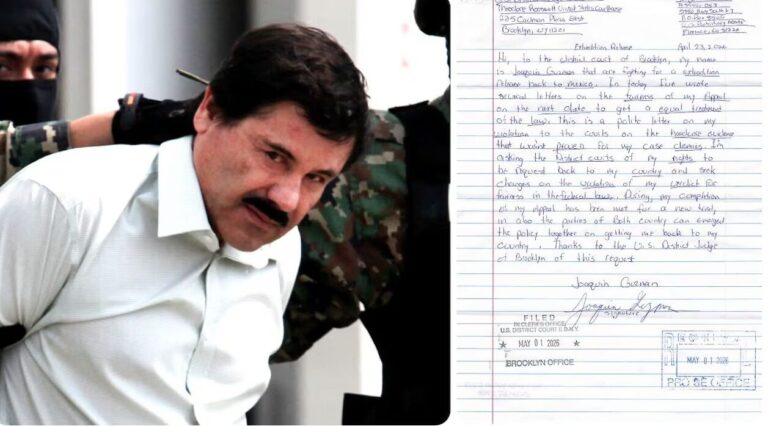 Theodore Roosevelt United States Courthouse
225 Cadman Plaza East
Brooklyn, NY 11201
Florence, Co 81226
Extradition Release April 23, 2026
Hi, to the district court of Brooklyn, my name
is Joaquin Guzman that are fighting for a extradition
release back to mexico. In today I've wrote
several letters on the fairness of my Appeal
on the next date to get a equal treatment
of the law. This is a polite letter on my
violation to the courts on the hardcase evidence
that wasint proven for my case claiming. I'm
asking the District courts of my rights to
be request back to my country and seek
changes on the violation of my verdict for
fairness in the federal laws. Doing, my completion
of my Appeal has been met for a new trial,
in also the parties of both country can
the policy together on getting me back to my
country. Thanks to the U.S. District Judge
of Brooklyn of this request
Joaquin Guzman
Signature
FILED
IN CLERK'S OFFICE
U.S. DISTRICT COURT E.D.N.Y.
★ MAY 01 2026 ★
BROOKLYN OFFICE
MAY 01 2026
PRO SE OFFICE